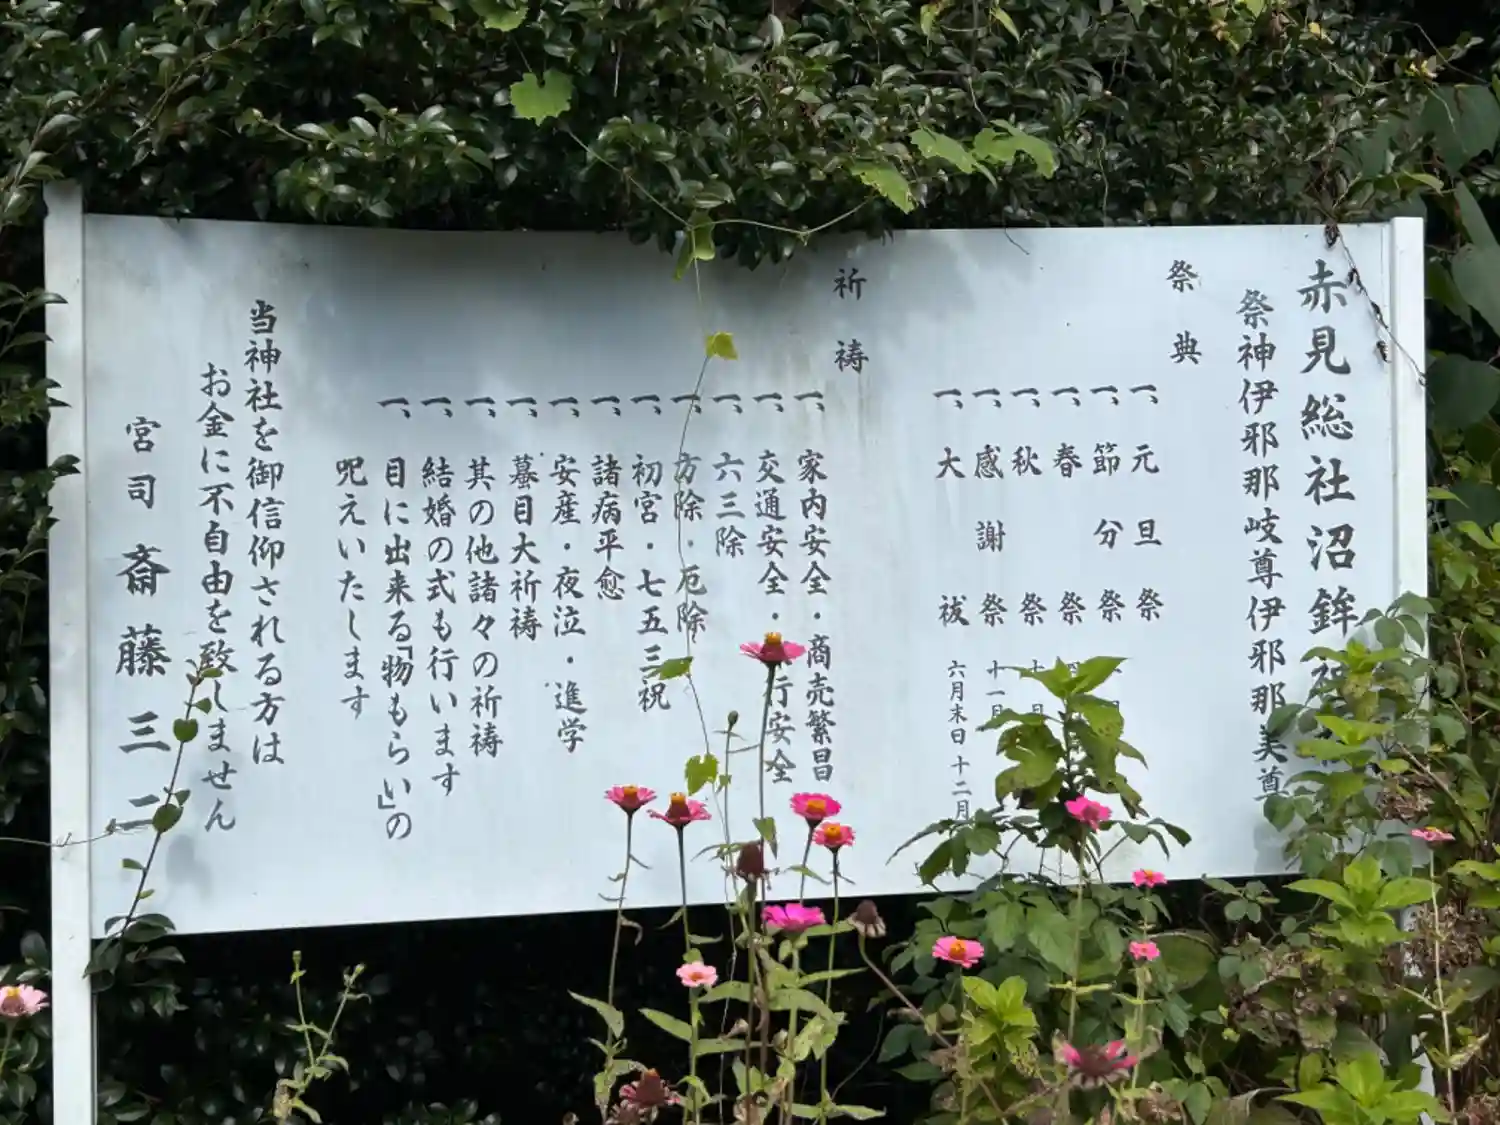 赤見総社沼鉾神
祭神伊邪那岐尊伊邪那美尊
祭典
一、元旦祭
一、節分祭
一、春祭
一、秋祭 十月
一、感謝祭 十一月
一、大祓 六月末日 十二月
祈祷
一、家内安全・商売繁昌
一、交通安全・行安全
一、六三除
一、方除・厄除
一、初宮・七五三祝
一、諸病平愈
一、安産・夜泣・進学
一、蟇目大祈祷
一、其の他諸々の祈祷
一、結婚の式も行います
一、目に出来る「物もらい」の
呪えいたします
当神社を御信仰される方は
お金に不自由を致しません
宮司 斎藤三二